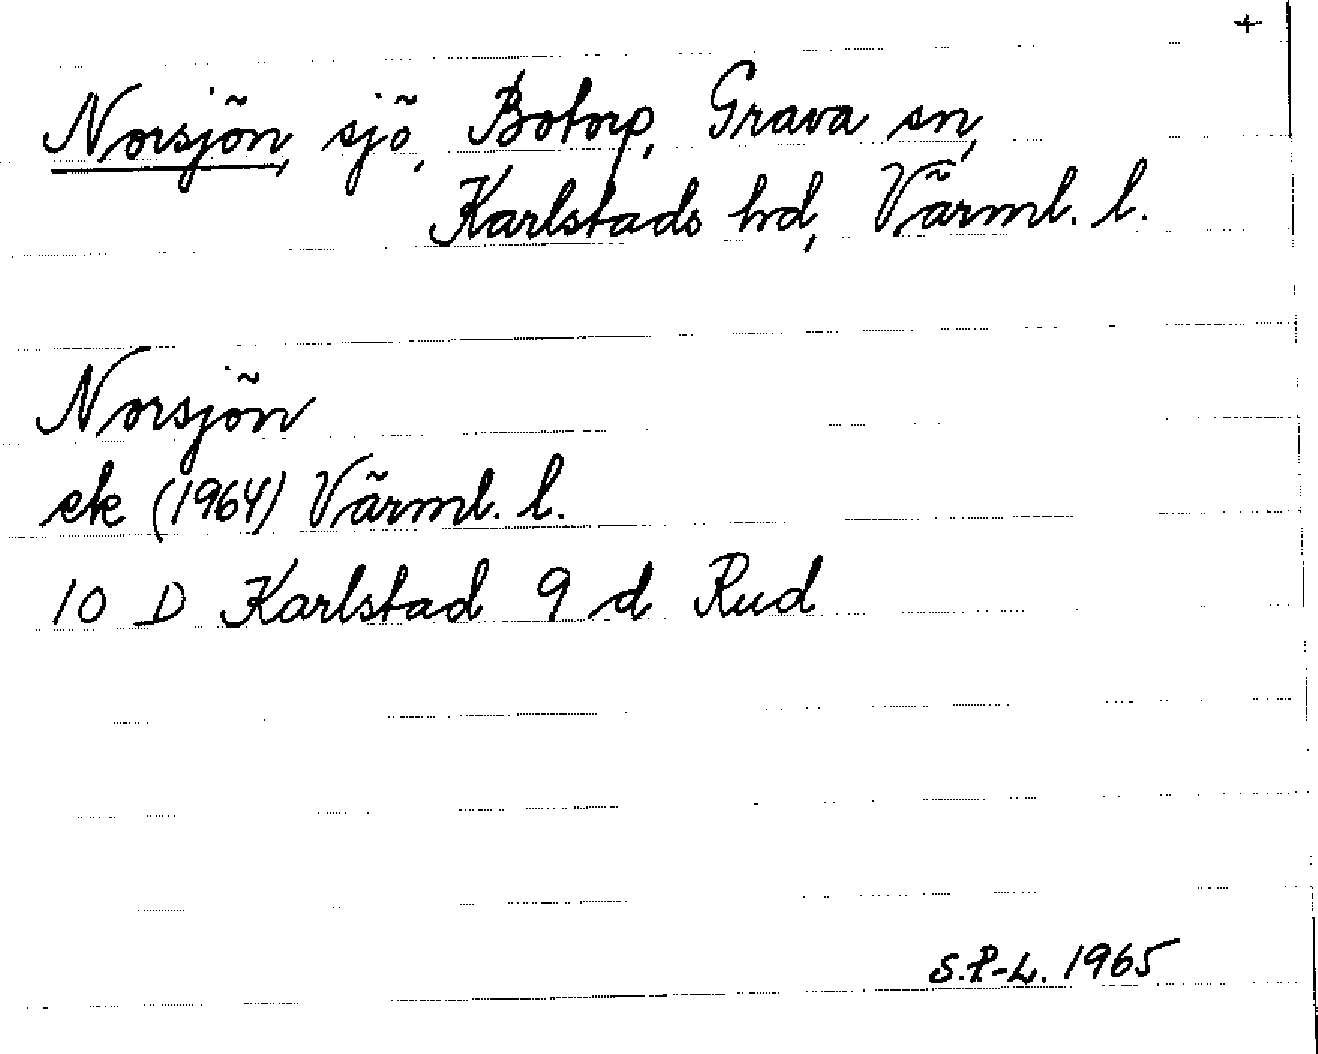 +
Norsjön, sjö, Botorp, Grava sn,
Karlstads hd, Värml. l.
Norsjön
ek (1964) Värml. l.
10 D Karlstad 9 d Rud
S.P-L. 1965